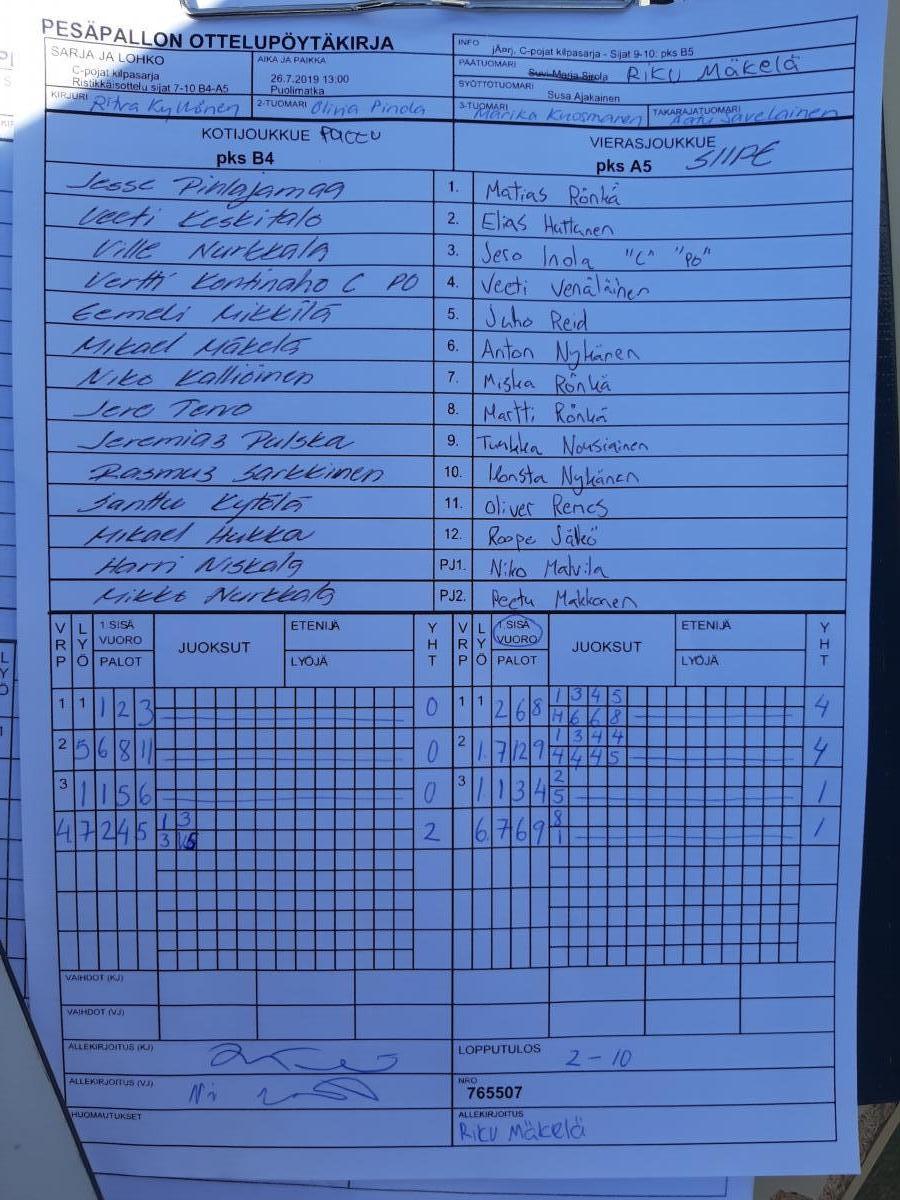 PESÄPALLON OTTELUPÖYTÄKIRJA
SARJA JA LOHKO
C-pojat kilpasarja
Ristikkäisottelu sijat 7-10 B4-A5
AIKA JA PAIKKA
26.7.2019 13:00
Puolimatka
INFO
jÄerj, C-pojat kilpasarja - Sijat 9-10: pks B5
PÄÄTUOMARI
Suvi-Marja Sirola Riku Mäkelä
SYÖTTÖTUOMARI
Susa Ajakainen
KIRJURI Ritva Kyllönen
2-TUOMARI Olivia Pinola
3-TUOMARI Marika Kuosmanen
TAKARAJATUOMARI Aatu Savelainen
KOTIJOUKKUE PattU
pks B4
VIERASJOUKKUE
pks A5 SIIPE
Jesse Pinlajamaa 1. Matias Rönkä
Veeti Keskitalo 2. Elias Huttunen
Ville Nurkkala 3. Jero Inola "C" "PO"
Vertti Kontinaho C PO 4. Veeti Venäläinen
Eemeli Mikkilä 5. Juho Reid
Mikael Mäkelä 6. Anton Nykänen
Niko Kallioinen 7. Miska Rönkä
Jere Tervo 8. Martti Rönkä
Jeremias Pulska 9. Tuukka Nousiainen
Rasmus Sarkkinen 10. Konsta Nykänen
Santtu Kytölä 11. Oliver Remes
Mikael Hukka 12. Roope Jälkö
Harri Niskala PJ1. Niko Matvila
Mikko Nurkkala PJ2. Peetu Makkonen
VRP LYÖ 1.SISÄ VUORO PALOT JUOKSUT ETENIJÄ LYÖJÄ YHT VRP LYÖ 1.SISÄ VUORO PALOT JUOKSUT ETENIJÄ LYÖJÄ YHT
1 1 1 2 3 0 1 1 2 6 8 1 3 4 5 4
4 6 6 8
2 5 6 8 11 0 2 1. 7 12 9 1 3 4 4 4
4 4 4 5
3 1 1 5 6 0 3 1 1 3 4 2 1
5
4. 7 2 4 5 1 3 2 6. 7 6 9 8 1
3 1
VAIHDOT (KJ)
VAIHDOT (VJ)
ALLEKIRJOITUS (KJ)
LOPPUTULOS 2-10
ALLEKIRJOITUS (VJ)
NRO
765507
HUOMAUTUKSET
ALLEKIRJOITUS
Riku Mäkelä